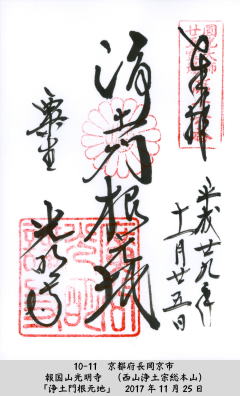 奉拝
平成廿九年
十一月廿五日
浄土門根元地
粟生
光明寺
10-11 京都府長岡京市
報国山光明寺 (西山浄土宗総本山)
「浄土門根元地」 2017年11月25日